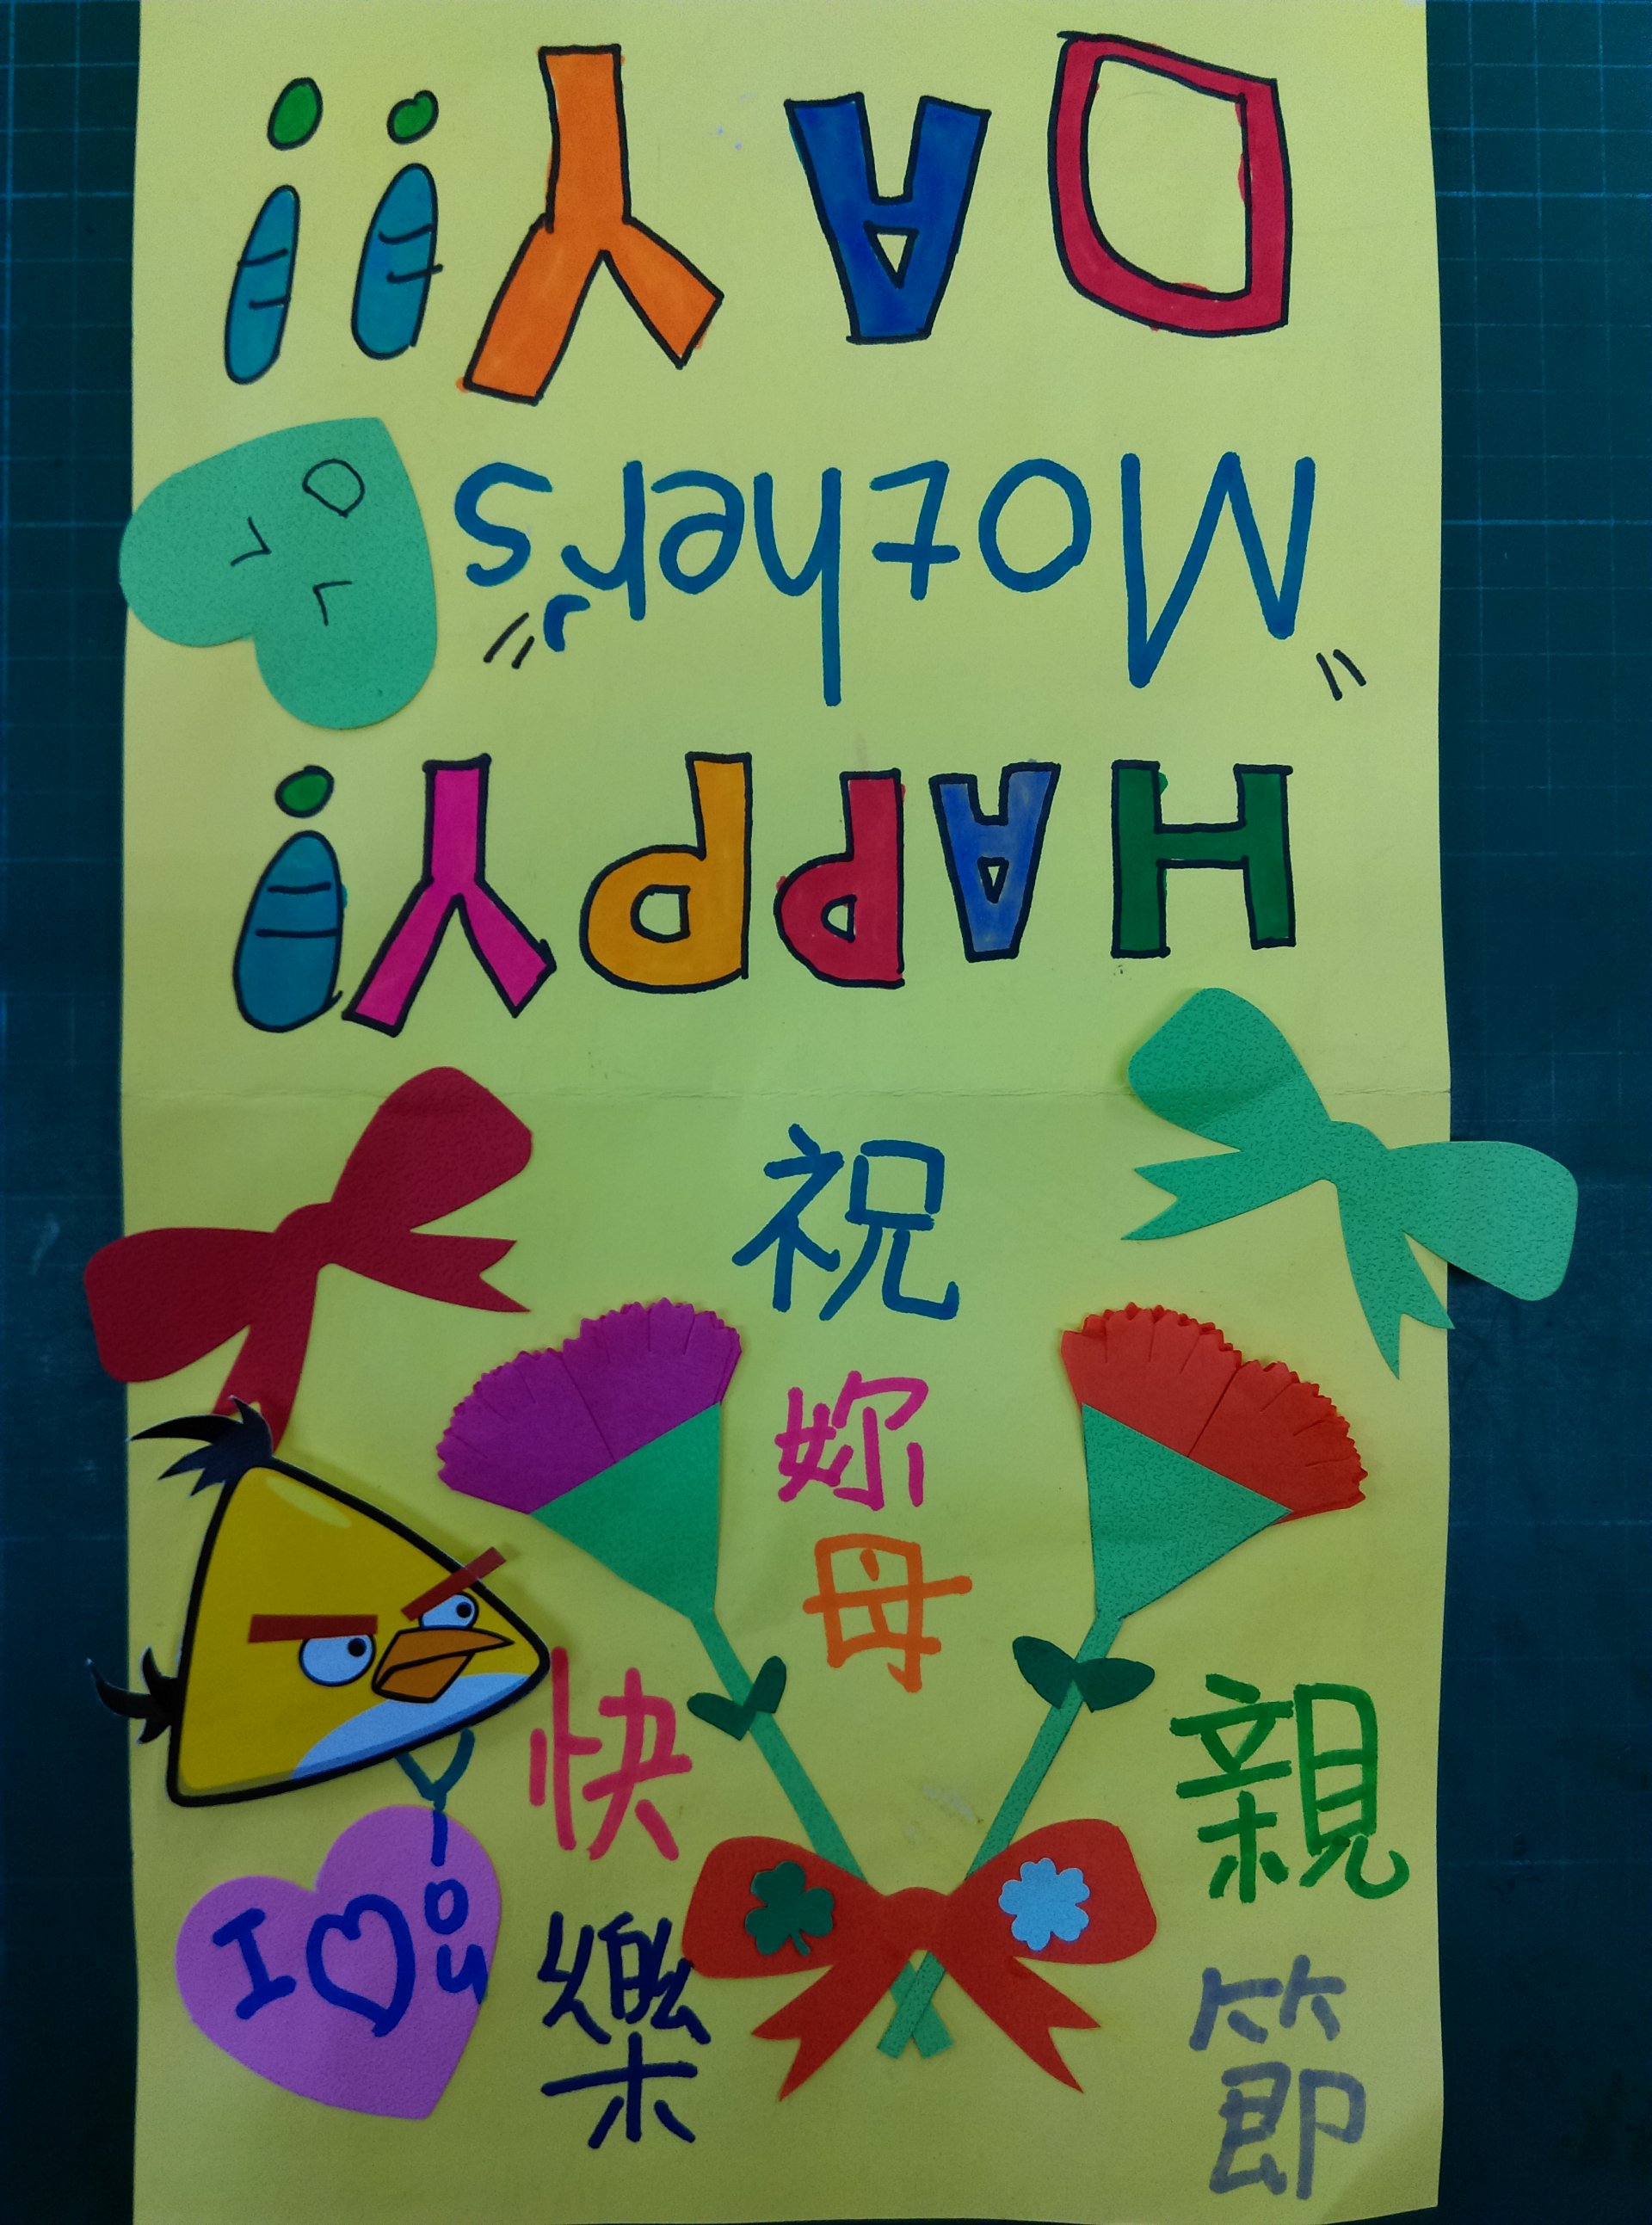 HAPPY!
Mother's
DAY!!
祝
妳
母
親
節
快
樂
I ♡ You